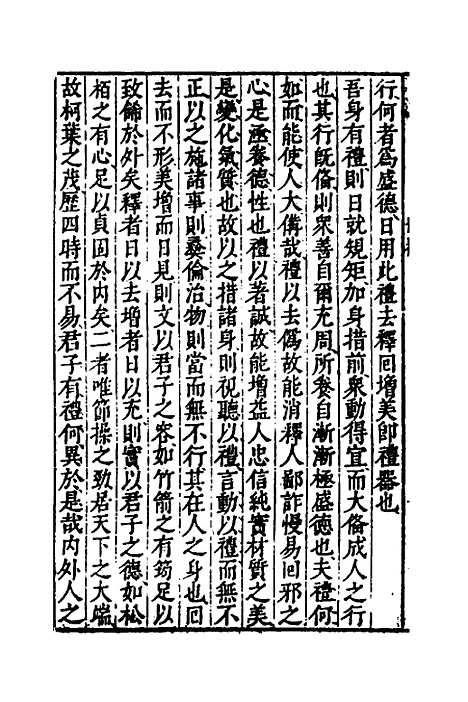 行何者爲盛德日用此禮去釋回增美即禮器也
吾身有禮則日就規矩加身措前衆動得宜而大俻成人之行
也其行既俻則衆善自爾充周所養自漸漸極盛德也夫禮何
如而能使人大俻哉禮以去爲故能消釋人鄙詐慢易回邪之
心是涵養德性也禮以著誠故能增益人忠信純實材質之美
是變化氣質也故以之措諸身則視聽以禮言動以禮而無不
正以之施諸事則彝倫治物則當而無不行其在人之身也回
去而不形美增而日見則文以君子之容如竹箭之有筠足以
致餙於外矣釋者日以去增者日以充則實以君子之德如松
栢之有心足以貞固於內矣二者唯節操之勁居天下之大端
故柯葉之茂歷四時而不易君子有禮何異於是哉内外人之